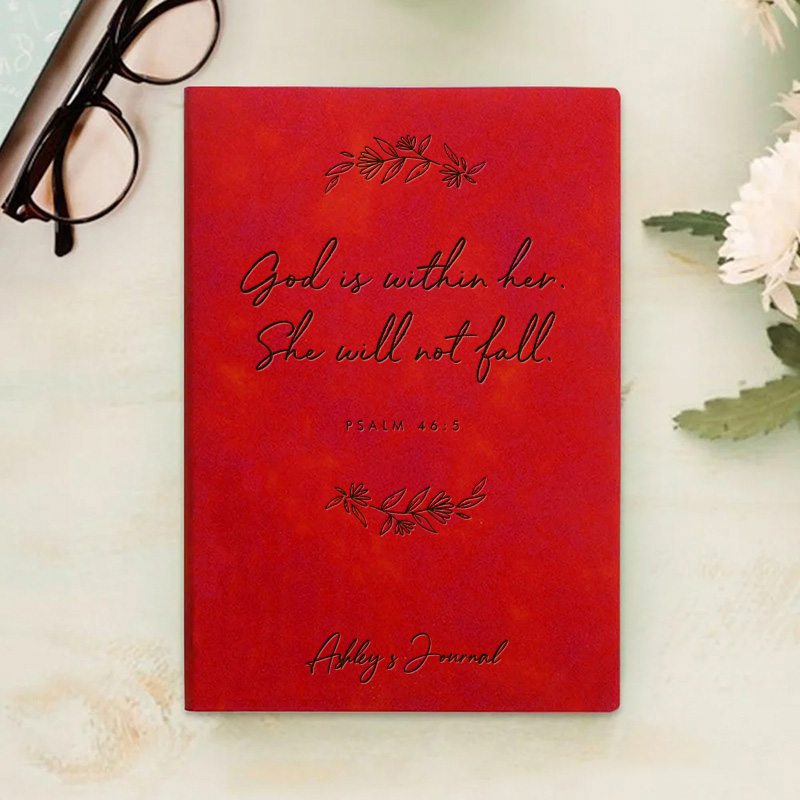 God is within her.
She will not fall.
PSALM 46:5
Ashley's Journal